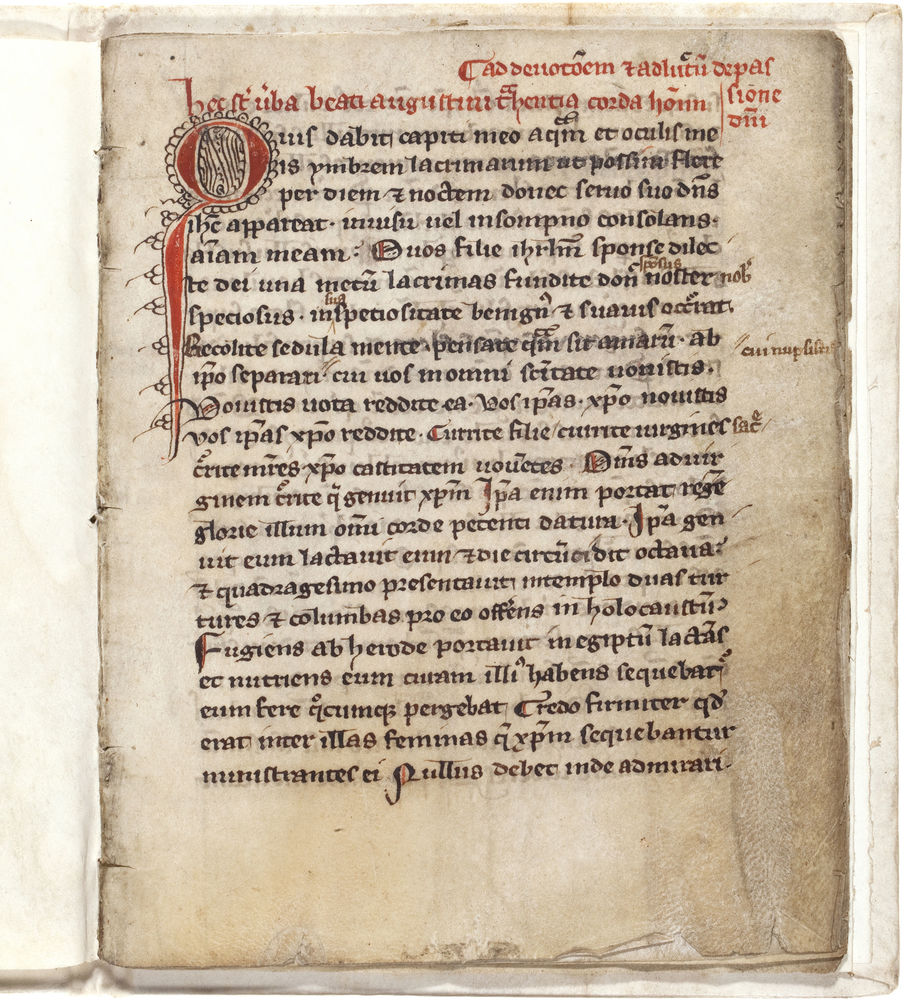 ad deuotōem ⁊ ad luctū de pas
hec st̄ ūba beati augustini t̄hentia corda hōm̄ sione
dn̄i
Quis dabit capiti meo aquā et oculis me
is ymbrem lacrimarum ut possim flere
per diem ⁊ noctem donec seruo suo dn̄s
ih̄c appareat · in uisu uel in sompno consolans ·
aīam meam · O uos filie ihrlm̄ sponse dilec
te dei una mecū lacrimas fundite donc̄ noster nob̄
sponsus
speciosus · in sua speciositate benign9 ⁊ suauis occ̄rat
Recolite sedula mente · pensate qm̄ sit amarū · ab
ip̄o separari cui uos in omni sc̄itate uouistis · cui nupsistis
Vouistis uota reddite ea · Vos ip̄as · xp̄o nouistis
vos ip̄as xp̄o reddite · Currite filie currite uirgines sac̄
c̄rite mr̄es xp̄o castitatem uouētes · Om̄s ad uir
ginem c̄rite q̄ genuit xp̄m Ip̄a enim portat regē
glorie illum om̄i corde petenti datura · Ip̄a gen
uit eum lactauit eum ⁊ die circūcidit octaua
⁊ quadragesimo presentauit in templo duas tur
tures ⁊ columbas pro eo offerens in holocaustū
Fugiens ab herode portauit in egiptū lactās
et nutriens eum curam illi9 habens sequebat᷑
eum fere q̄cumq; pergebat Credo firmiter qd̄
erat inter illas feminas q̄ xp̄m sequebantur
ministrantes ei Nullus debet inde admirari ·